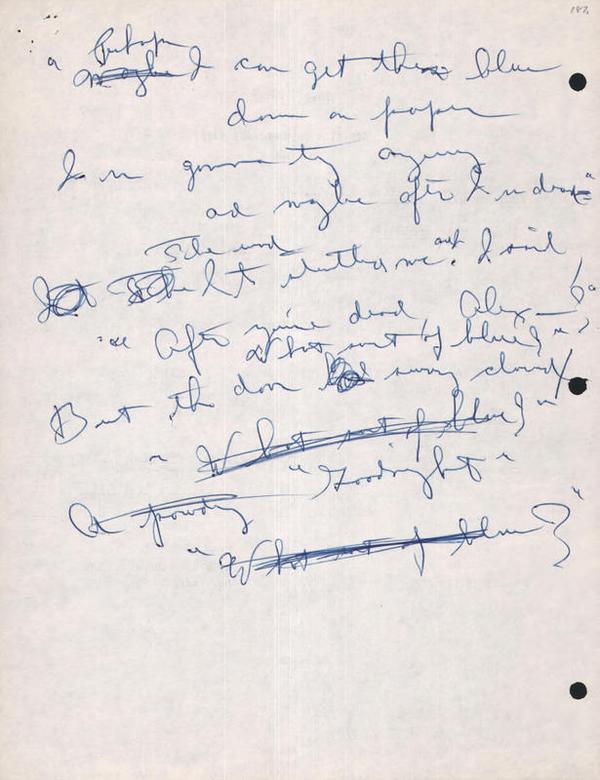 187.
Perhaps
" maybe I can get these blue
down on paper
I'm gonna try anyway
and maybe after I'm dead"
Side wind
It shutters me out. I said
"After you're dead, Alex—
What sort of blue?"
But the door swung closed
"What sort of blue?"
"Goodnight"
A
"What sort of blue?"